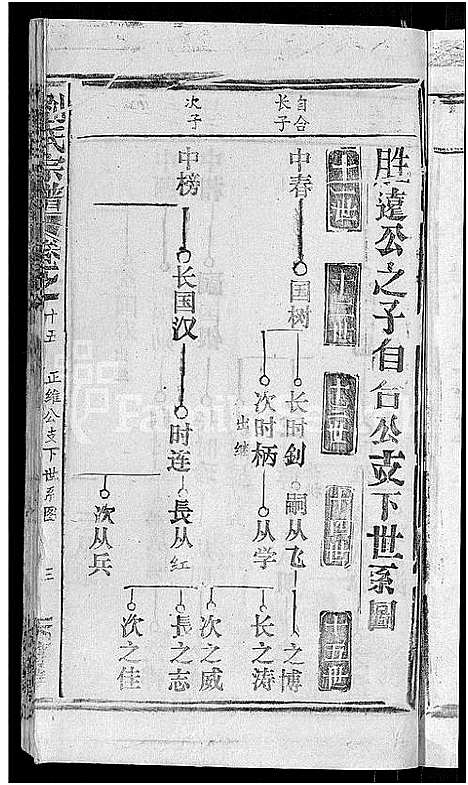 胜遠公之子自台公支下世系圖
十一世
十二世
十三世
十四世
十五世
自台
长子
中春
国树
长时釗
次时柄
出继
嗣从飞
从学
之博
长之涛
次之威
次子
中榜
长国汉
时连
長从红
次从兵
長之志
次之佳
氏宗譜
十五
正维公支下世系图
三